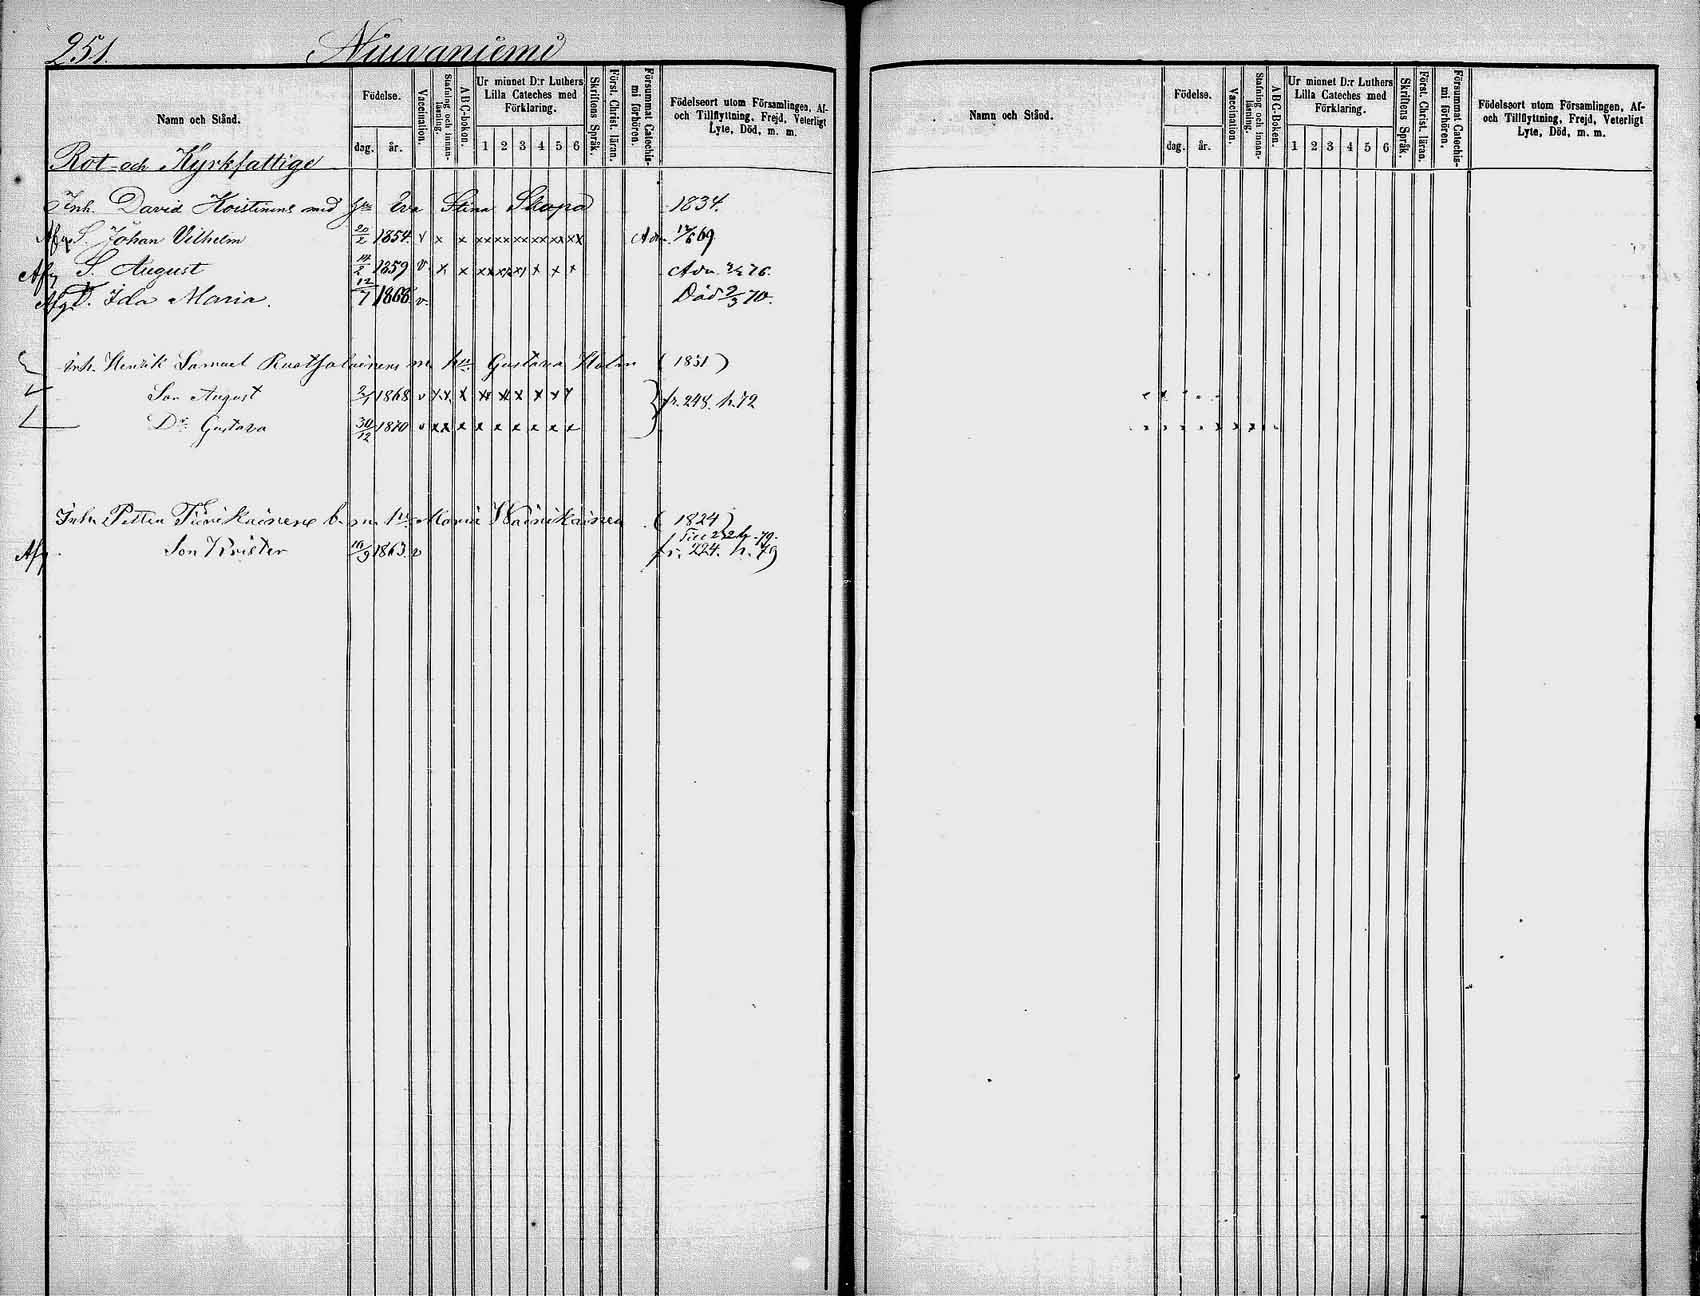 251. Niuvaniemi
Namn och Stånd.
Födelse.
dag. år.
Vaccination.
Stafning och innanläsning.
ABC-boken.
Ur minnet D:r Luthers
Lilla Cateches med
Förklaring.
1 2 3 4 5 6
Skriftens Språk.
Först. Christ. läran.
Försummat Catechis-
mi förhören.
Födelseort utom Församlingen, Af-
och Tillflyttning, Frejd, Veterligt
Lyte, Död, m. m.
Rot- och Kyrkfattige
Inh. David Koistinens med Eva Stina Skopa 1834.
Afg S. Johan Vilhelm 20/2 1854. v x x xx xx xx xx xx xx Adm. 12/6 69
Afg S. August 14/2 1859 v x x xx xx xx x x x Adm. 76.
Afg D. Ida Maria. 12/7 1868 v Död 2/3 70.
inh. Henrik Samuel m. hu Gustava Holm (1831)
Son August 2/1 1868 v x x x x x x x x x
fr. 248. h. 72
Dr Gustava 30/12 1870 v x x x x x x x x x
Inh. Petter b. m. hu Maria Wainikainen (1824)
Till 232 h. 79.
Afg. Son Krister 16/9 1863 v fr. 224. h. 79
Namn och Stånd.
Födelse.
dag. år.
Vaccination.
Stafning och innanläsning.
ABC-Boken.
Ur minnet D:r Luthers
Lilla Cateches med
Förklaring.
1 2 3 4 5 6
Skriftens Språk.
Först. Christ. läran.
Försummat Catechis-
mi förhören.
Födelseort utom Församlingen, Af-
och Tillflyttning, Frejd, Veterligt
Lyte, Död, m. m.